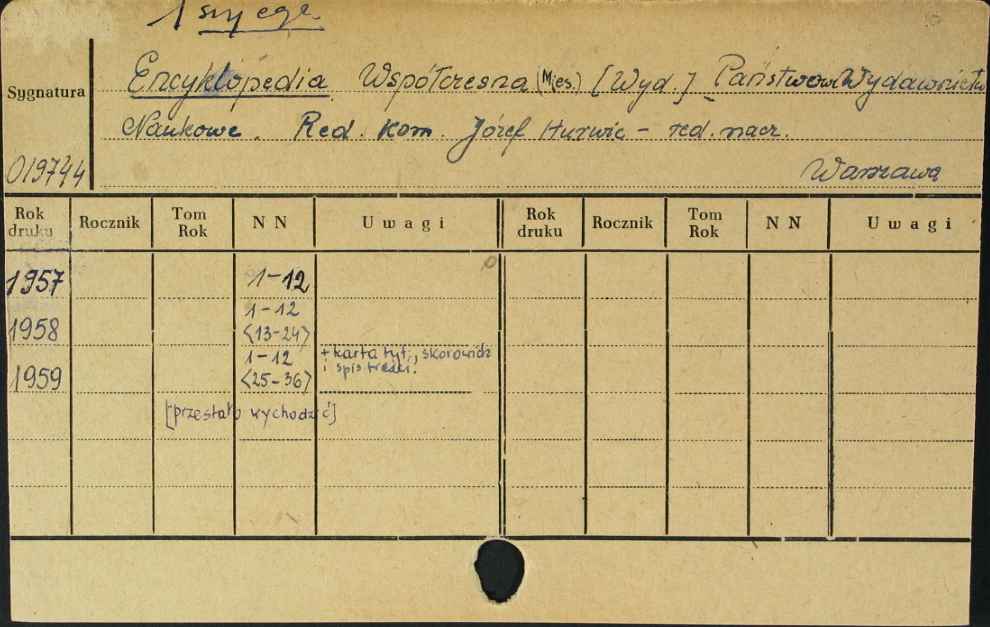 1 egz.
Sygnatura
Encyklopedia Współczesna (Mies.) [Wyd.] Państwowe Wydawnictwo
Naukowe. Red. kom. Józef Hurwic – red. nacz.
019744
Warszawa
Rok druku Rocznik Tom Rok NN Uwagi Rok druku Rocznik Tom Rok NN Uwagi
1957 1–12
1–12
1958 <13–24>
1–12 + karta tyt., skorowidz
1959 <25–36> i spis treści.
[przestało wychodzić]